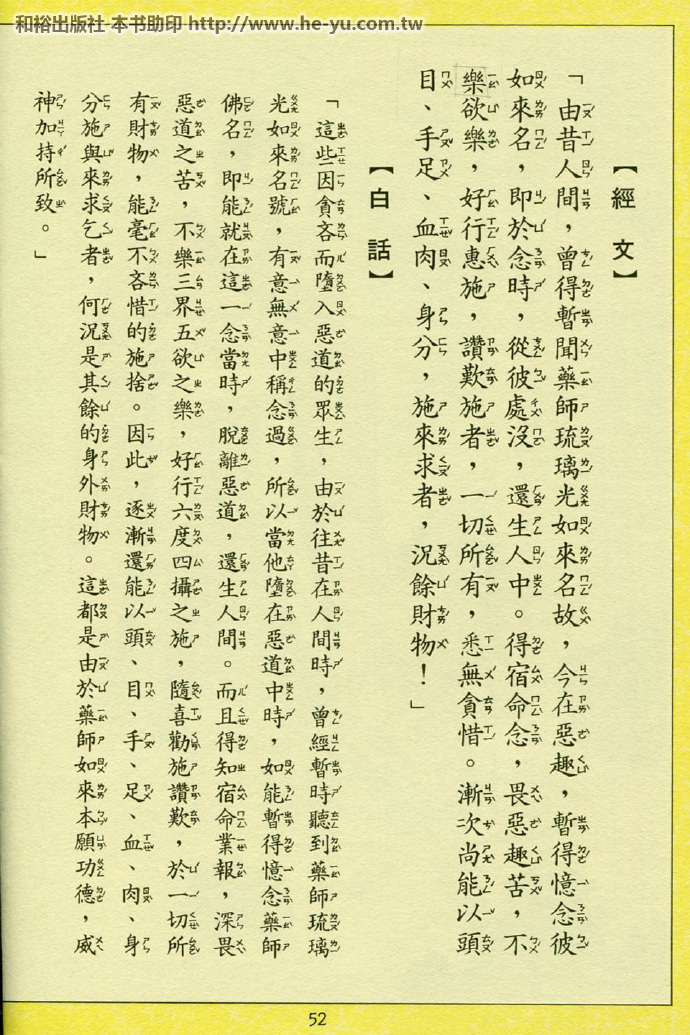 和裕出版社 本书助印 http://www.he-yu.com.tw
【經文】
「由昔人間，曾得暫聞藥師琉璃光如來名故，今在惡趣，暫得憶念彼
如來名，即於念時，從彼處沒，還生人中。得宿命念，畏惡趣苦，不
樂欲樂，好行惠施，讚歎施者，一切所有，悉無貪惜。漸次尚能以頭
目、手足、血肉、身分，施來求者，況餘財物！」
【白話】
「這些因貪吝而墮入惡道的眾生，由於往昔在人間時，曾經暫時聽到藥師琉璃
光如來名號，有意無意中稱念過，所以當他墮在惡道中時，如能暫得憶念藥師
佛名，即能就在這一念當時，脫離惡道，還生人間。而且得知宿命業報，深畏
惡道之苦，不樂三界五欲之樂，好行六度四攝之施，隨喜勸施讚歎，於一切所
有財物，能毫不吝惜的施捨。因此，逐漸還能以頭、目、手、足、血、肉、身
分施與來求乞者，何況是其餘的身外財物。這都是由於藥師如來本願功德，威
神加持所致。」
52